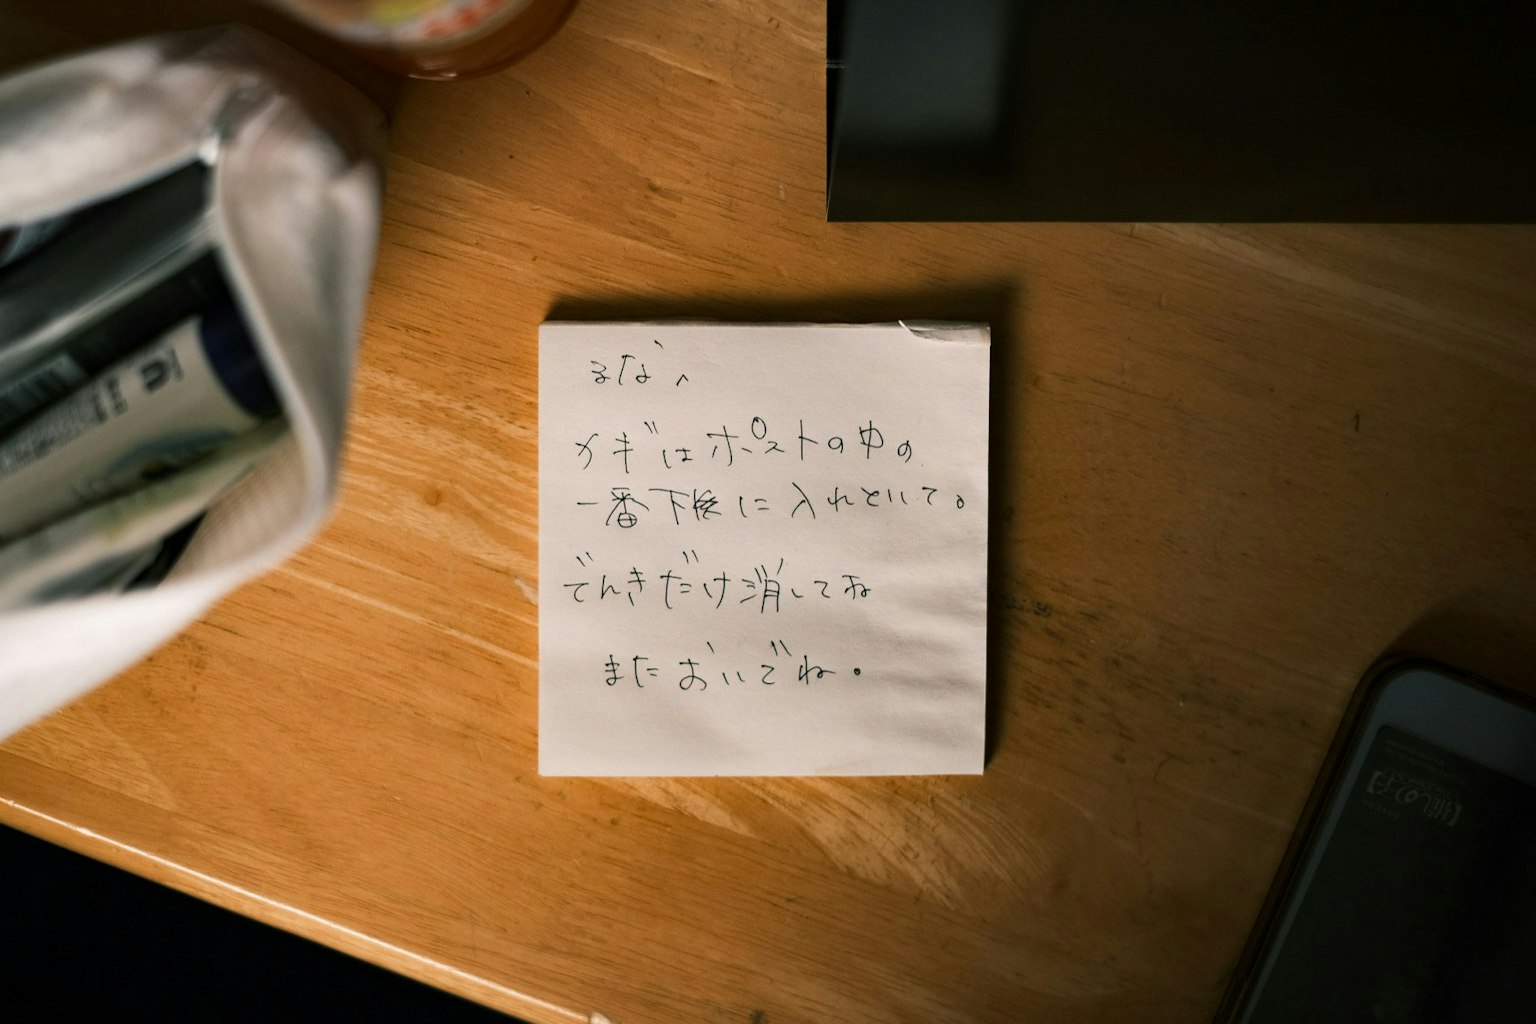 るな、
カギはポストの中の
一番下後に入れといて。
でんきだけ消してね
またおいでね.